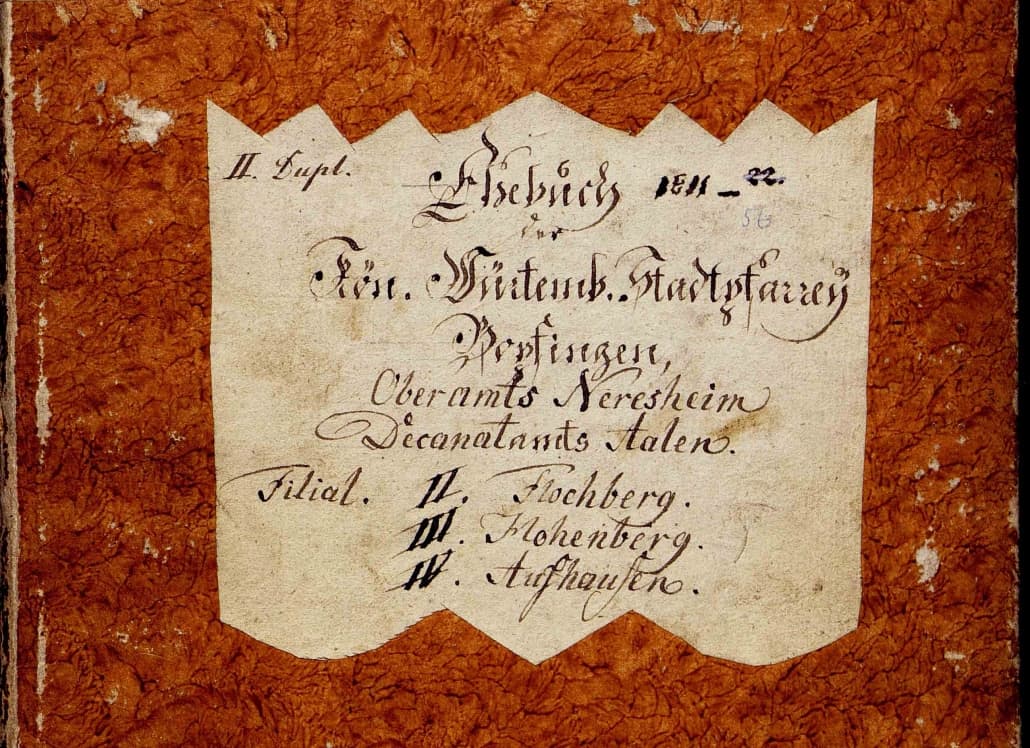 II. Dupl. Ehebuch 1811 – 22.
56
der
Kön. Würtemb. Stadtpfarrey
Bopfingen,
Oberamts Neresheim
Decanatamts Aalen.
Filial. II. Flochberg.
III. Hohenberg.
IV. Aufhausen.